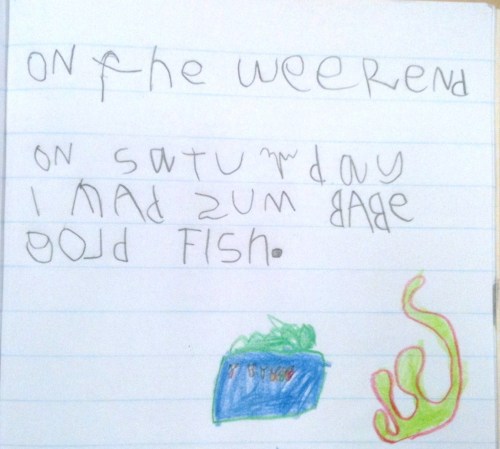 ON the weekend
ON saturday
I HAd zum BABe
gold FISh.